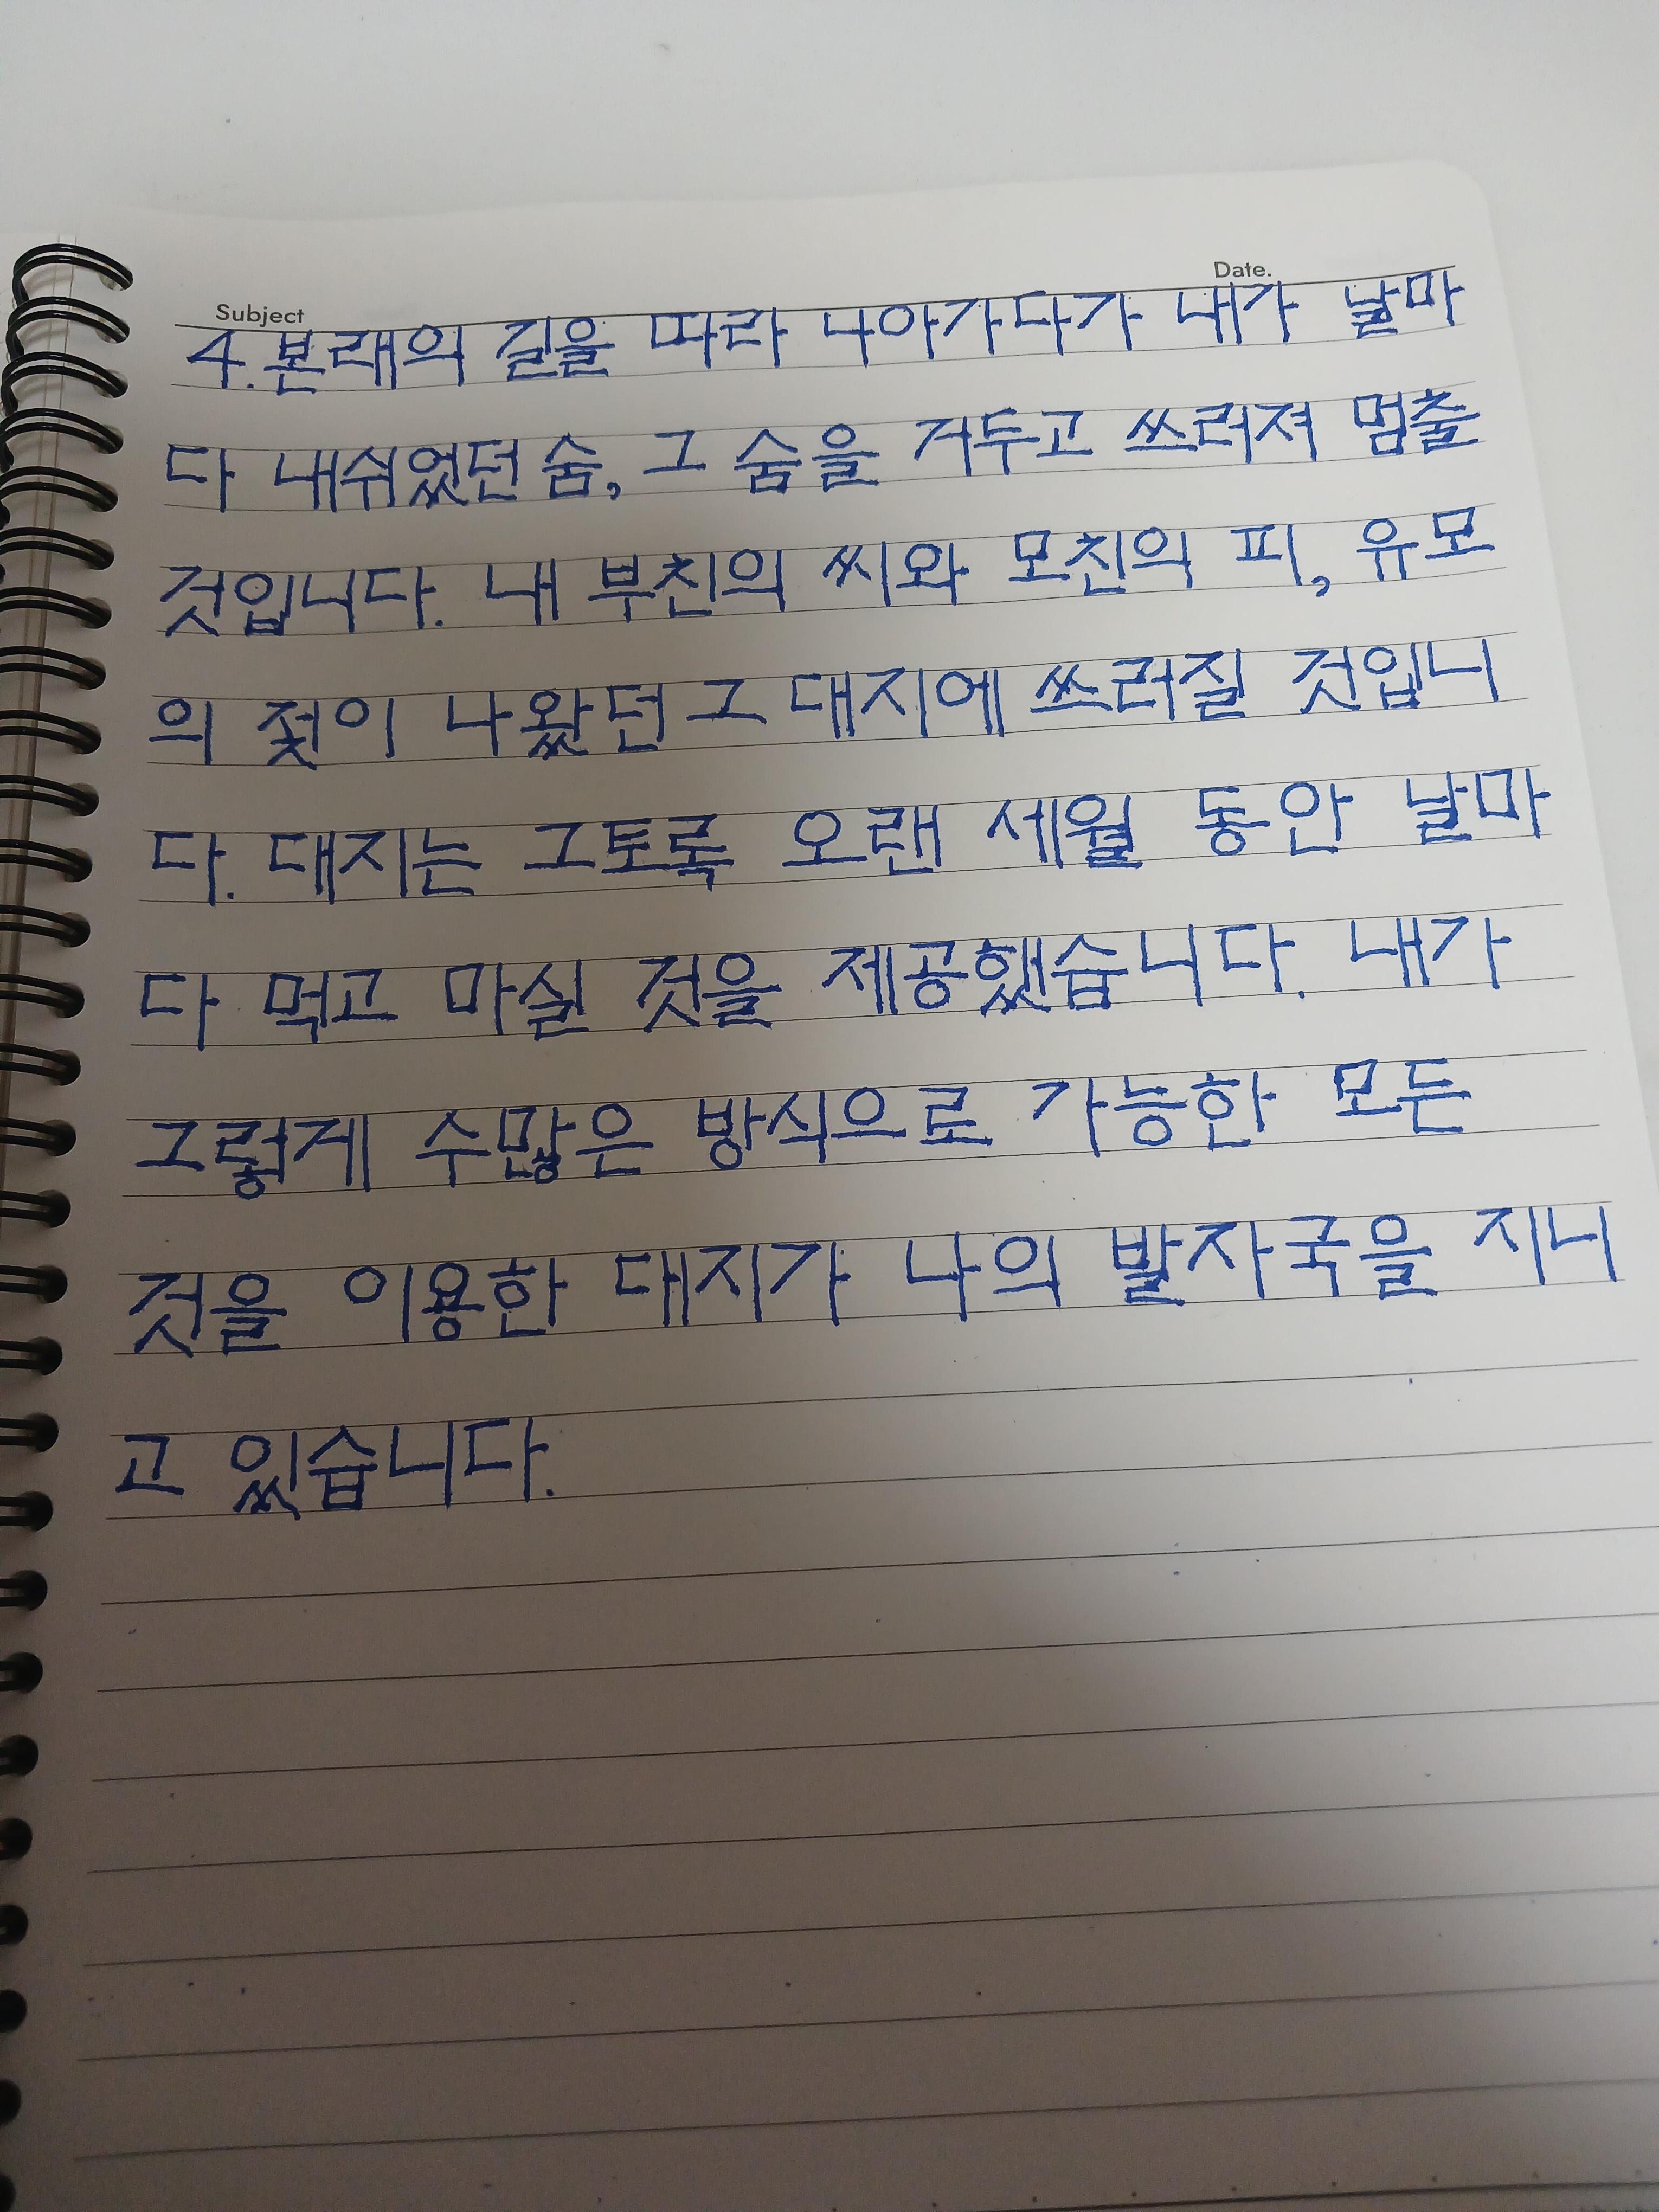 Subject
Date.
4. 본래의 길을 따라 나아가다가 내가 날마
다 내쉬었던 숨, 그 숨을 거두고 쓰러져 멈출
것입니다. 내 부친의 씨와 모친의 피, 유모
의 젖이 나왔던 그 대지에 쓰러질 것입니
다. 대지는 그토록 오랜 세월 동안 날마
다 먹고 마실 것을 제공했습니다. 내가
그렇게 수많은 방식으로 가능한 모든
것을 이용한 대지가 나의 발자국을 지니
고 있습니다.